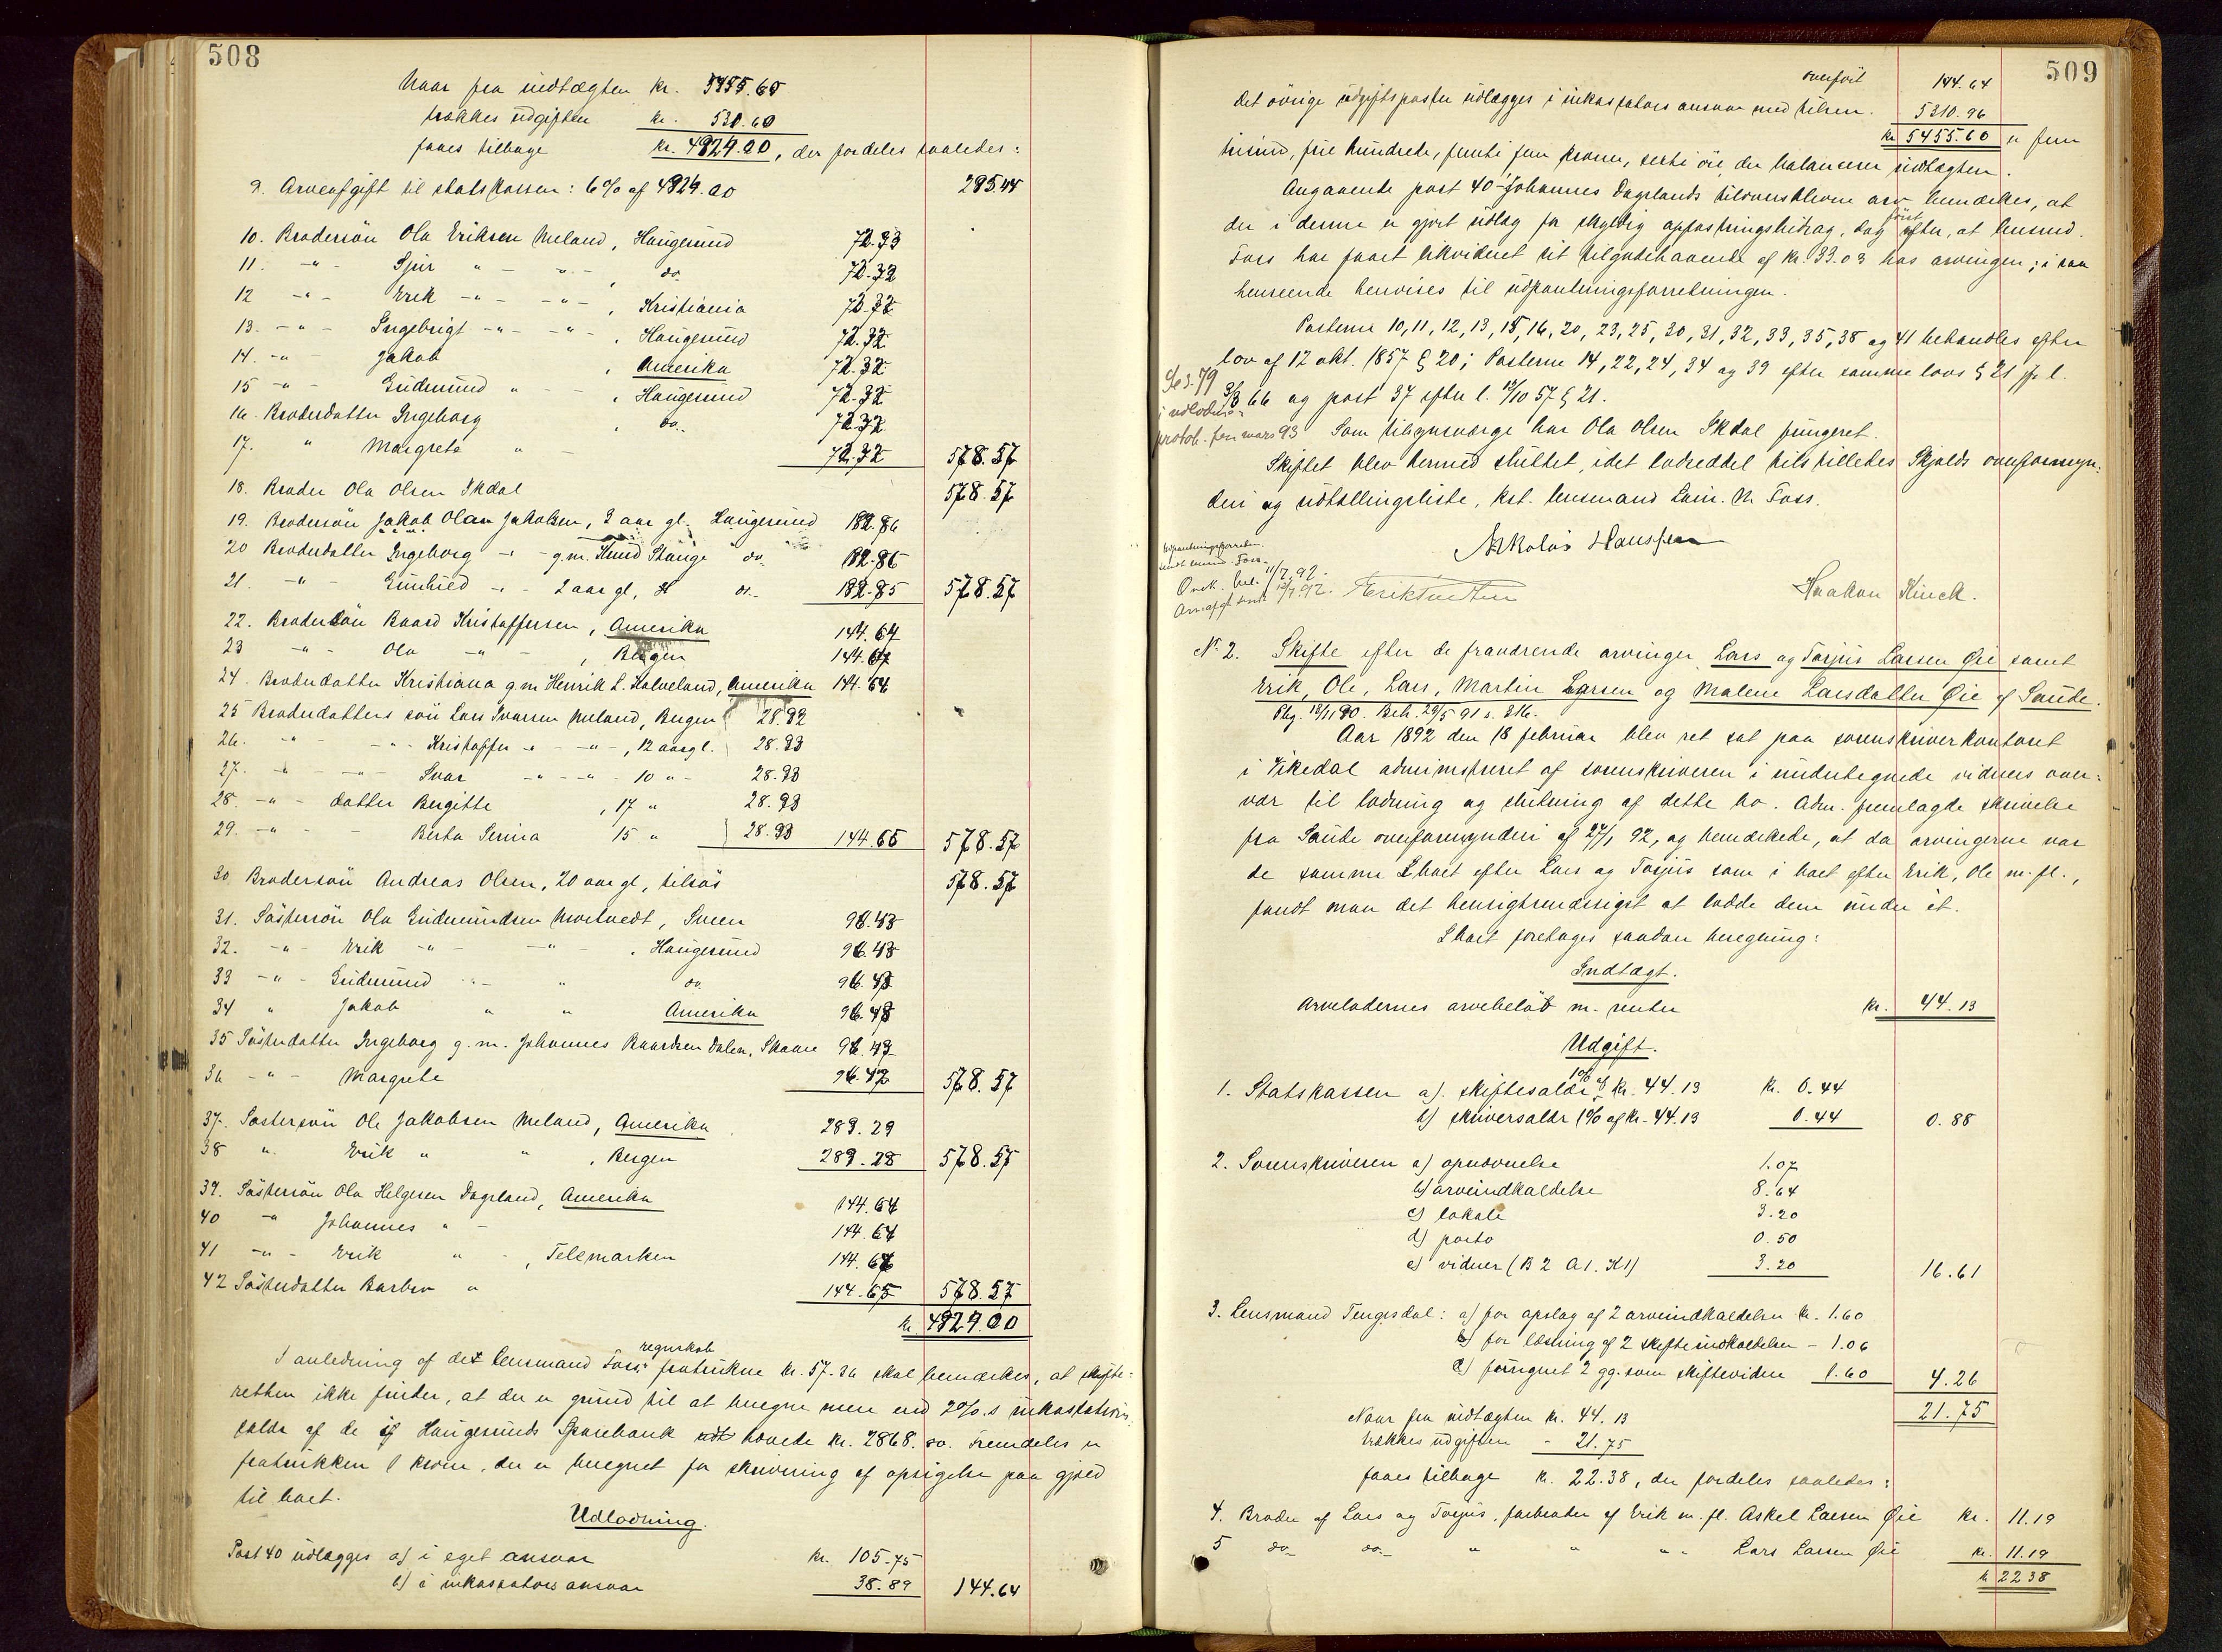 508
Naar fra indtægten kr. 5455.60
trækkes udgiften kr. 530.60
faaes tilbage kr. 4924.00, der fordeles saaledes:
9. Arveafgift til statskassen: 6% af 4924.00 295.44
10. Brodersön Ola Eriksen Meland, Haugesund 72.33
11. -"- Sjur " - " - , do 72.32
12 -"- Erik -"- -"- , Kristiania 72.32
13. -"- Ingebrigt -"- -"- , Haugesund 72.32
14. -"- Jakob , Amerika 72.32
15 -"- Gudmund " - , Haugesund 72.32
16. Broderdatter Ingeborg , do. 72.32
17. " Margrete " - 72.32 578.57
18. Broder Ola Olsen Skdal 578.57
19. Brodersön Jakob Olaus Jakobsen, 3 aar gl. Haugesund 192.86
20 Broderdatter Ingeborg -"- g.m. Knud Stange do. 192.86
21. -"- Gunhild -"- 2 aar gl, H do.. 192.85 578.57
22. Brodersön Baard Kristoffersen, Amerika 144.64
23 -"- Ola -"- , Bergen 144.64
24. Broderdatter Kristiana g.m. Henrik L. Halveland, Amerika 144.64
25 Broderdatters sön Lars Ivarsen Meland, Bergen 28.92
26. -"- -"- Kristoffer -"- -"-, 12 aar gl. 28.93
27. -"- -"- Ivar -"- -"- 10 "- 28.93
28. -"- datter Bergitte , 17 " 28.93
29. -"- - Berta Serina 15 " 28.93 144.65 578.57
30 Brodersön Andreas Olsen, 20 aar gl, tilsös 578.57
31. Söstersön Ola Gudmundsen Mortvedt, Sveen 96.43
32. -"- Erik -"- -"- , Haugesund 96.43
33 -"- Gudmund -"- " do. 96.43
34 " Jakob " " Amerika 96.43
35 Sösterdatter Ingeborg g.m. Johannes Baardsen Dalen, Skaare 96.43
36 -"- Margrete 96.42 578.57
37. Söstersön Ole Jakobsen Meland, Amerika 289.29
38 " Erik " " , Bergen 289.28 578.57
39. Söstersön Ola Helgesen Dagsland, Amerika 144.64
40 -" Johannes " - 144.64
41 -"- Erik " - , Telemarken 144.64
42 Sösterdatter Barbro " 144.65 578.57
kr 4924.00
regnskab
I anledning af det lensmand Foss' fratrukne kr. 57.36 skal bemærkes, at skifte-
retten ikke finder, at der er grund til at beregne mere end 2%.s inkassations-
salær af de i Haugesunds Sparebank hævede kr. 2868.00. Fremdeles er
fratrukken 1 krone, der er beregnet for skrivning af opsigelse paa gjæld
til boet.
Udlodning.
Post 40 udlægges a) i eget ansvar kr. 105.75
b) i inkassators ansvar 38.89 144.64
509
overfört 144.64
Det övrige udgiftsposter udlægges i inkassators ansvar med tilsm. 5310.96
kr 5455.60 er fem
tusind, fire hundrede, femti fem kroner, sexti öre, der balancerer indtægten.
Angaaende post 40 Johannes Dagslands tilkommblevne arv bemærkes, at
först
der i denne er gjort udlæg for skyldig opfostringsbidrag, dog efter, at lensmd.
Foss har faaet likvideret sit tilgodehavende af kr. 33.03 hos arvingen; i saa
henseende henvises til udpantningsforretningen.
Posterne 10, 11, 12, 13, 15, 16, 20, 23, 25, 30, 31, 32, 33, 35, 38 og 41 behandles efter
lov af 12 okt. 1857 § 20; Posterne 14, 22, 24, 34 og 39 efter samme lovs § 21 jfr l.
3/3 66 og post 37 efter l. 12/10 57 § 21.
Se s. 79
i udlodns-
protok. for mars 93
Som tilsynsværge har Ola Olsen Skdal fungeret.
Skiftet blev dermed sluttet, idet lodseddel tilstilledes Skjolds overformyn-
deri og udtællingsliste, kst. lensmand Lair. M. Foss.
Nikolas Hanssen
Udpantningsforretn.
sendt lensmd. Foss 11/7 92.
Haakon Kinck.
No 2. Skifte efter de fraværende arvinger Lars og Torjus Larsen Øie samt
Erik, Ole, Lars, Martin Larsen og Malene Larsdatter Øie af Saude.
Pbg. 12/11 90. Beh. 29/5 91 s. 316.
Aar 1892 den 18 februar blev ret sat paa sorenskriverkontoret
i Vikedal administreret af sorenskriveren i undertegnede vidners over-
vær til lodning og slutning af dette bo. Adm. fremlagde skrivelse
fra Saude overformynderi af 27/1 92, og bemærkede, at da arvingerne var
de samme i boet efter Lars og Torjus som i boet efter Erik, Ole m.fl.,
fandt man det hensigtsmæssigst at lodde dem under ét.
I boet foretages saadan beregning:
Indtægt.
Arveladernes arvebelöb m. renter kr. 44.13
Udgift.
1. Statskassen a). skiftesalær 1% af kr. 44.13 kr. 0.44
b) skriversalær 1% af kr. 44.13 0.44 0.88
2. Sorenskriveren a) opnævnelse 1.07
b) arveindkaldelse 8.64
c) lokale 3.20
d) porto 0.50
e) vidner (B 2 A 1. K1) 3.20 16.61
3. Lensmand Tengesdal: a) for opslag af 2 arveindkaldelser kr. 1.60
b) for læsning af 2 skifteindkaldelser - 1.06
c) fungeret 2 gg. som skiftevidne 1.60 4.26
21.75
Naar fra indtægten kr. 44.13
trækkes udgiften - 21.75
faaes tilbage kr. 22.38, der fordeles saaledes:
4. Broder af Lars og Torjus, farbroder af Erik m.fl. Askel Larsen Øie kr. 11.19
5 do- do.- " " " - Lars Larsen Øie kr. 11.19
kr 22 38